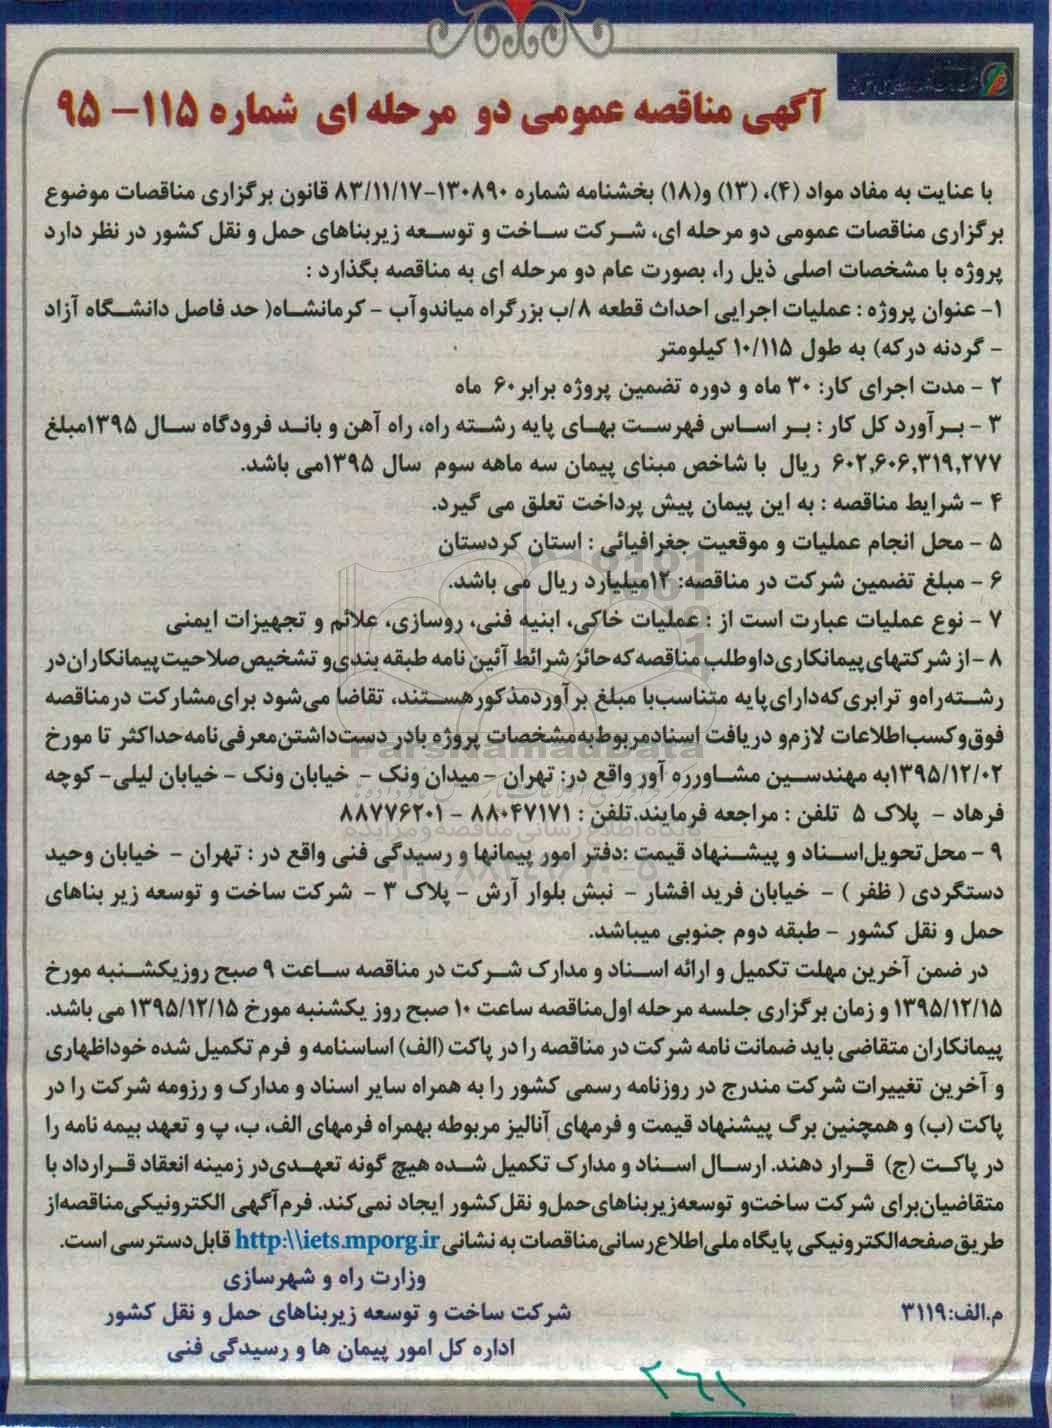 آگهی مناقصه عمومی دو مرحله ای شماره ۱۱۵– ۹۵
با عنایت به مفاد مواد (۴)، (۱۳) و(۱۸) بخشنامه شماره ۱۳۰۸۹۰-۸۳/۱۱/۱۷ قانون برگزاری مناقصات موضوع
برگزاری مناقصات عمومی دو مرحله ای، شرکت ساخت و توسعه زیربناهای حمل و نقل کشور در نظر دارد
پروژه با مشخصات اصلی ذیل را، بصورت عام دو مرحله ای به مناقصه بگذارد :
۱- عنوان پروژه : عملیات اجرایی احداث قطعه ۸/ب بزرگراه میاندوآب - کرمانشاه( حد فاصل دانشگاه آزاد
- گردنه درکه) به طول ۱۰/۱۱۵ کیلومتر
۲ - مدت اجرای کار: ۳۰ ماه و دوره تضمین پروژه برابر۶۰ ماه
۳ - برآورد کل کار : بر اساس فهرست بهای پایه رشته راه، راه آهن و باند فرودگاه سال ۱۳۹۵مبلغ
۶۰۲,۶۰۶,۳۱۹,۲۷۷ ریال با شاخص مبنای پیمان سه ماهه سوم سال ۱۳۹۵می باشد.
۴ - شرایط مناقصه : به این پیمان پیش پرداخت تعلق می گیرد.
۵ - محل انجام عملیات و موقعیت جغرافیائی : استان کردستان
۶ - مبلغ تضمین شرکت در مناقصه: ۱۲میلیارد ریال می باشد.
۷ - نوع عملیات عبارت است از : عملیات خاکی، ابنیه فنی، روسازی، علائم و تجهیزات ایمنی
۸ - از شرکتهای پیمانکاری داوطلب مناقصه که حائز شرائط آئین نامه طبقه بندی و تشخیص صلاحیت پیمانکاران در
رشته راه و ترابری که دارای پایه متناسب با مبلغ برآورد مذکور هستند، تقاضا می شود برای مشارکت در مناقصه
فوق و کسب اطلاعات لازم و دریافت اسناد مربوط به مشخصات پروژه با در دست داشتن معرفی نامه حداکثر تا مورخ
۱۳۹۵/۱۲/۰۲به مهندسین مشاورره آور واقع در: تهران - میدان ونک - خیابان ونک - خیابان لیلی- کوچه
فرهاد - پلاک ۵ تلفن : مراجعه فرمایند.تلفن : ۸۸۰۴۷۱۷۱ - ۸۸۷۷۶۲۰۱
۹ - محل تحویل اسناد و پیشنهاد قیمت :دفتر امور پیمانها و رسیدگی فنی واقع در : تهران - خیابان وحید
دستگردی ( ظفر ) - خیابان فرید افشار - نبش بلوار آرش - پلاک ۳ - شرکت ساخت و توسعه زیر بناهای
حمل و نقل کشور - طبقه دوم جنوبی میباشد.
در ضمن آخرین مهلت تکمیل و ارائه اسناد و مدارک شرکت در مناقصه ساعت ۹ صبح روزیکشنبه مورخ
۱۳۹۵/۱۲/۱۵ و زمان برگزاری جلسه مرحله اول مناقصه ساعت ۱۰ صبح روز یکشنبه مورخ ۱۳۹۵/۱۲/۱۵ می باشد.
پیمانکاران متقاضی باید ضمانت نامه شرکت در مناقصه را در پاکت (الف) اساسنامه و فرم تکمیل شده خوداظهاری
و آخرین تغییرات شرکت مندرج در روزنامه رسمی کشور را به همراه سایر اسناد و مدارک و رزومه شرکت را در
پاکت (ب) و همچنین برگ پیشنهاد قیمت و فرمهای آنالیز مربوطه بهمراه فرمهای الف، ب، پ و تعهد بیمه نامه را
در پاکت (ج) قرار دهند. ارسال اسناد و مدارک تکمیل شده هیچ گونه تعهدی در زمینه انعقاد قرارداد با
متقاضیان برای شرکت ساخت و توسعه زیربناهای حمل و نقل کشور ایجاد نمی کند. فرم آگهی الکترونیکی مناقصه از
طریق صفحه الکترونیکی پایگاه ملی اطلاع رسانی مناقصات به نشانی http:\\iets.mporg.ir قابل دسترسی است.
وزارت راه و شهرسازی
شرکت ساخت و توسعه زیربناهای حمل و نقل کشور
اداره کل امور پیمان ها و رسیدگی فنی
م.الف:۳۱۱۹
۲۶۱
ParsNamadData
پایگاه اطلاع رسانی مناقصه و مزایده